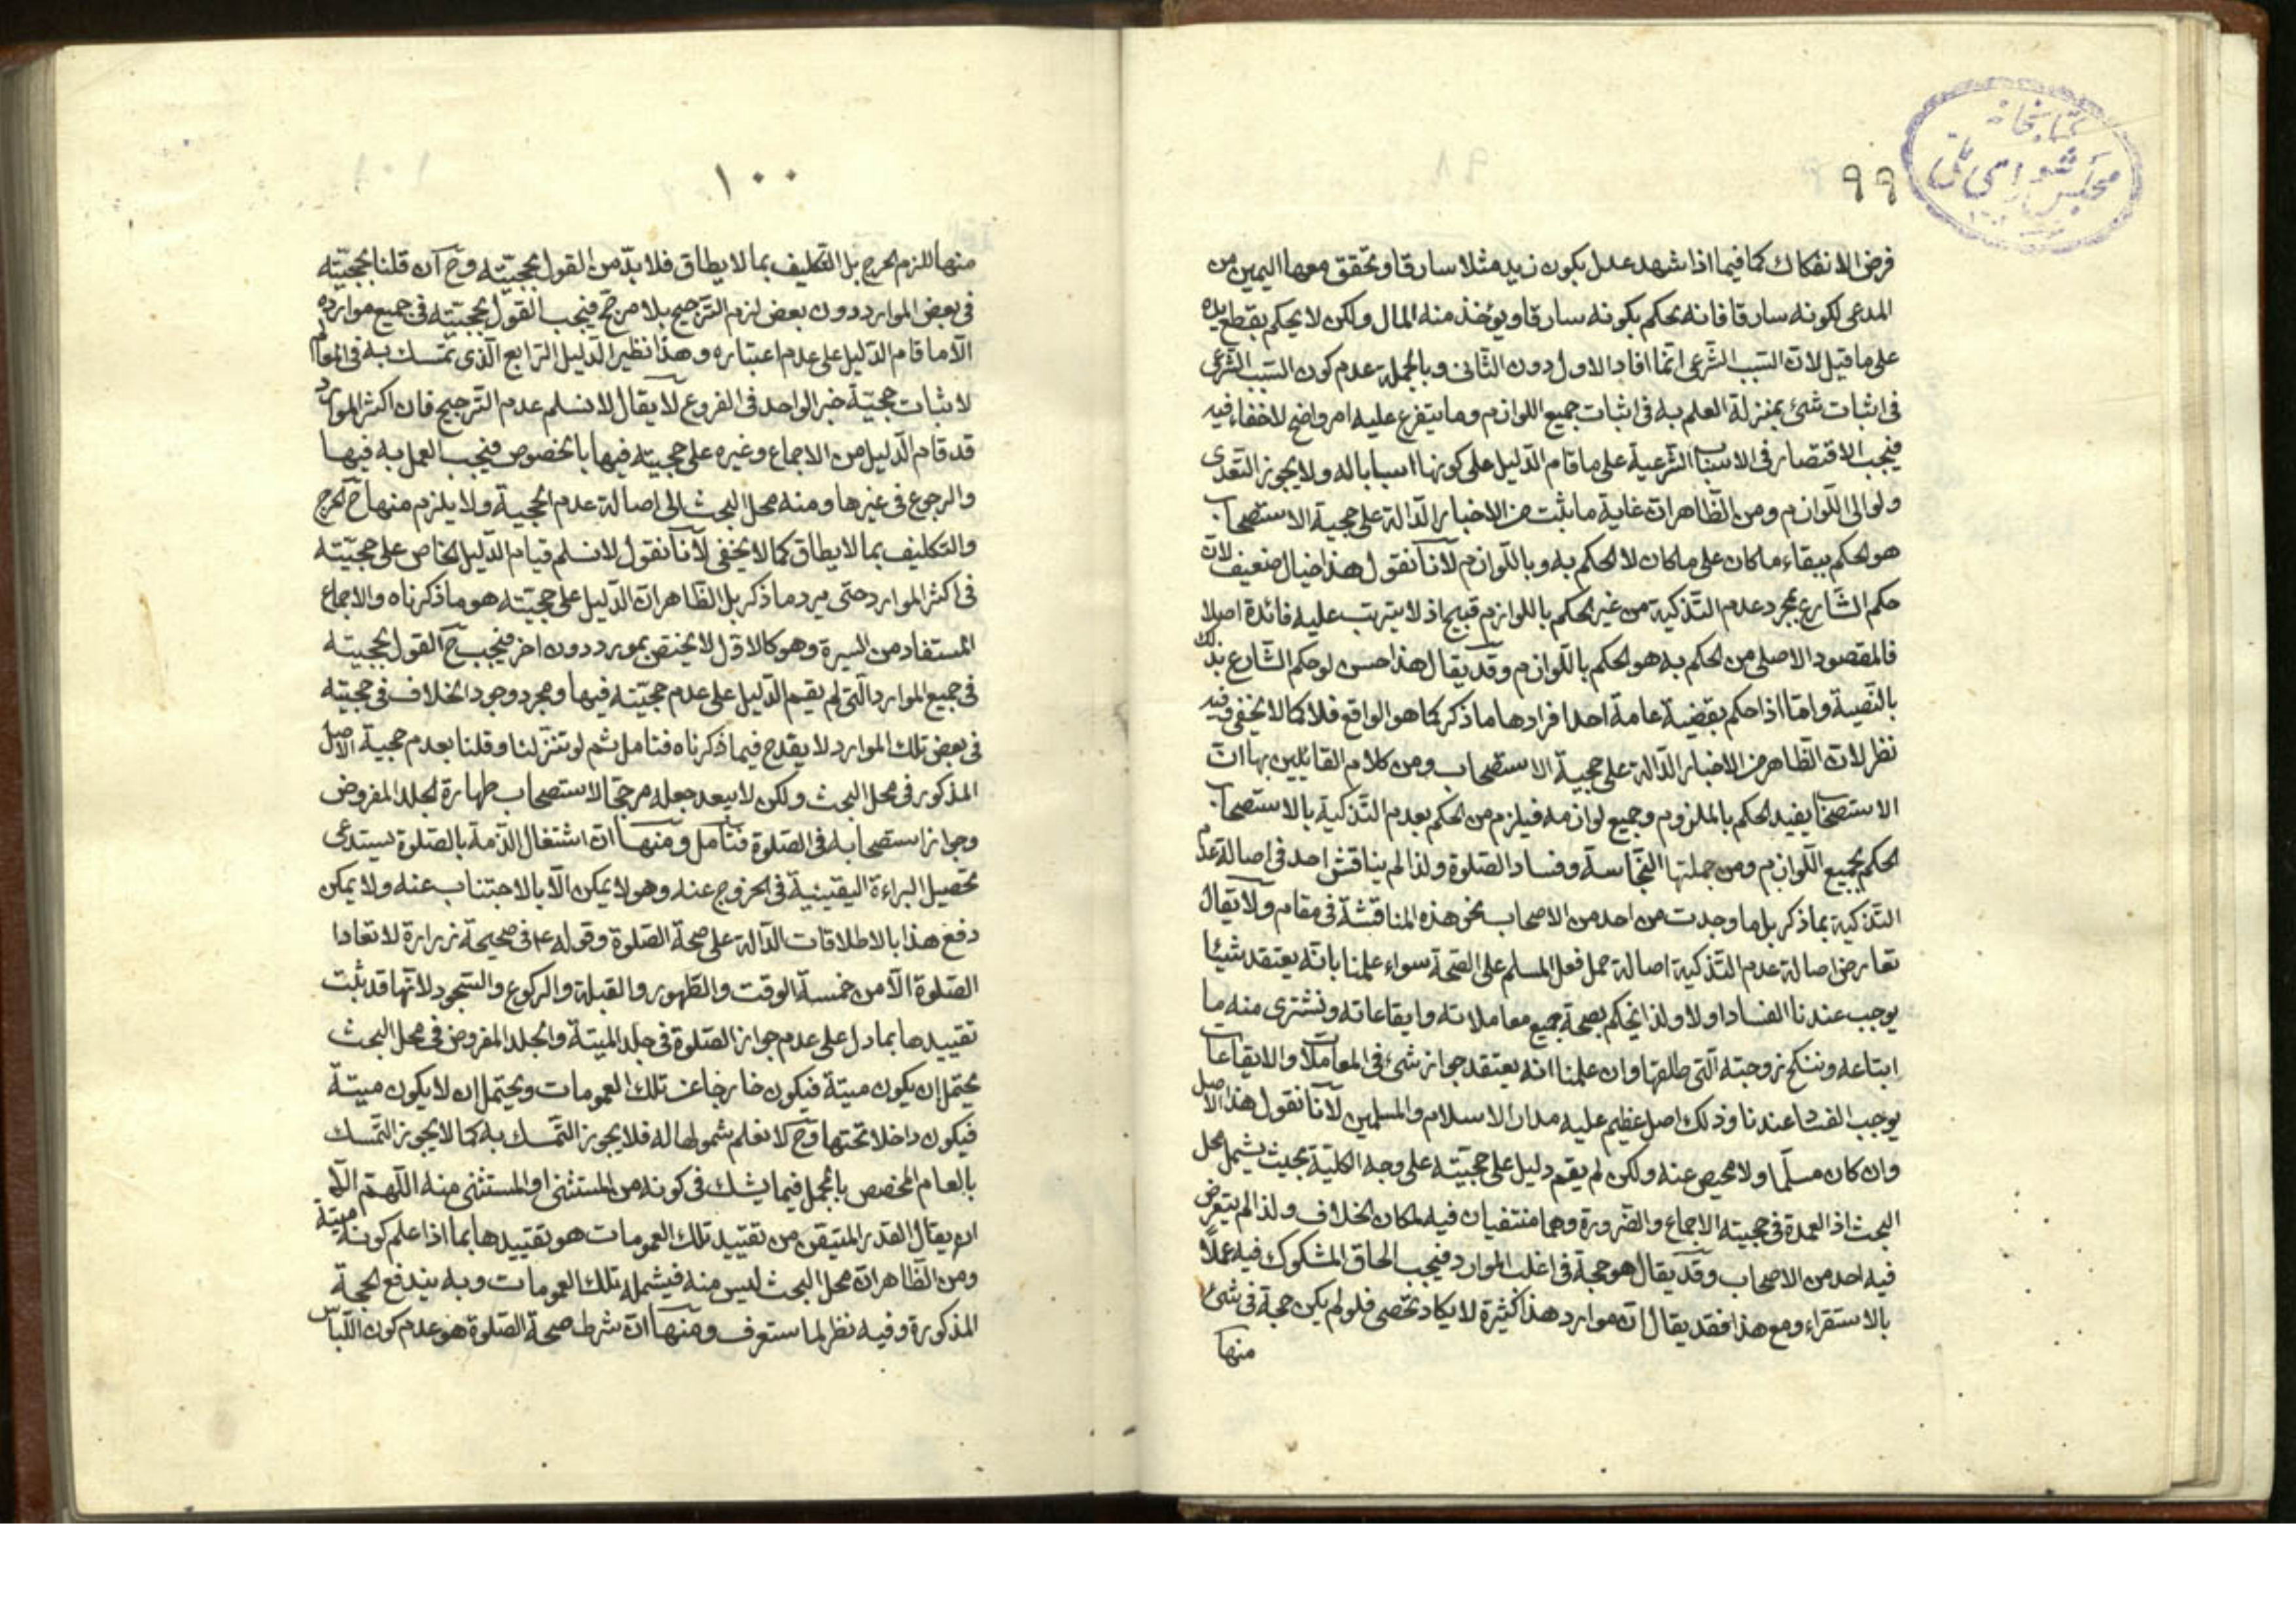 كتابخانه
مجلس شورای ملی
٩٩
فرض الانفكاك كما فيما اذا شهد عدل بكون زيد مثلا سارقا وتحقق معها اليمين من
المدعى لكونه سارقا فانه يحكم بكونه سارقا ويؤخذ منه المال ولكن لا يحكم بقطع يده
على ما قيل لان السبب الشرعى انما افاد الاول دون الثانى وبالجملة عدم كون السبب الشرعى
فى اثبات شئ بمنزلة العلم به فى اثبات جميع اللوازم وما يتفرع عليه امر واضح لا خفاء فيه
فيجب الاقتصار فى الاسباب الشرعية على ما قام الدليل على كونها اسبابا له ولا يجوز التعدى
ولو الى اللوازم ومن الظاهر ان غاية ما ثبت من الاخبار الدالة على حجية الاستصحاب
هو الحكم ببقاء ما كان على ما كان لا الحكم به وباللوازم لانا نقول هذا خيال ضعيف لان
حكم الشارع بمجرد عدم التذكية من غير الحكم باللوازم قبيح اذ لا يترتب عليه فائدة اصلا
فالمقصود الاصلى من الحكم به هو الحكم باللوازم وقد يقال هذا حسن لو حكم الشارع بذلك
بالنصية واما اذا حكم بقضية عامة احد افرادها ما ذكر كما هو الواقع فلا كما لا يخفى وفيه
نظر لان الظاهر من الاخبار الدالة على حجية الاستصحاب ومن كلام القائلين بها ان
الاستصحاب يفيد الحكم بالملزوم وجميع لوازمه فيلزم من الحكم بعدم التذكية بالاستصحاب
الحكم بجميع اللوازم ومن جملتها النجاسة وفساد الصلوة ولذا لم يناقش احد فى اصالة عدم
التذكية بما ذكر بل ما وجدت من احد من الاصحاب نحو هذه المناقشة فى مقام ولا يقال
تعارض اصالة عدم التذكية اصالة حمل فعل المسلم على الصحة سواء علمنا بانه يعتقد شيئا
يوجب عندنا الفساد او لا ولذا نحكم بصحة جميع معاملاته وايقاعاته ونشترى منه ما
ابتاعه وننكح زوجته التى طلقها وان علمنا انه يعتقد جواز شئ فى المعاملات والايقاعات
يوجب الفساد عندنا وذلك اصل عظيم عليه مدار الاسلام والمسلمين لانا نقول هذا الاصل
وان كان مسلما ولا محيص عنه ولكن لم يقم دليل على حجيته على وجه الكلية بحيث يشمل محل
البحث اذ العمدة فى حجيته الاجماع والضرورة وهما منتفيان فيه لمكان الخلاف ولذا لم يتعرض
فيه احد من الاصحاب وقد يقال هو حجة فى اغلب الموارد فيجب الحاق المشكوك فيه عملا
بالاستقراء ومع هذا فقد يقال ان موارد هذا كثيرة لا يكاد تحصى فلو لم يكن حجة فى شئ
منها
١٠٠
منها للزم الحرج بل التكليف بما لا يطاق فلا بد من القول بحجيته وح ان قلنا بحجيته
فى بعض الموارد دون بعض لزم الترجيح بلا مرجح فيجب القول بحجيته فى جميع موارده
الا ما قام الدليل على عدم اعتباره وهذا نظير الدليل الرابع الذى تمسك به فى المعالم
لاثبات حجية خبر الواحد فى الفروع لا يقال لا نسلم عدم الترجيح فان اكثر الموارد
قد قام الدليل من الاجماع وغيره على حجيته فيها بالخصوص فيجب العمل به فيها
والرجوع فى غيرها ومنه محل البحث الى اصالة عدم الحجية ولا يلزم منها ح الحرج
والتكليف بما لا يطاق كما لا يخفى لانا نقول لا نسلم قيام الدليل الخاص على حجيته
فى اكثر الموارد حتى يرد ما ذكر بل الظاهر ان الدليل على حجيته هو ما ذكرناه والاجماع
المستفاد من السيرة وهو كالاول لا يختص بمورد دون اخر فيجب ح القول بحجيته
فى جميع الموارد التى لم يقم الدليل على عدم حجيته فيها ومجرد وجود الخلاف فى حجيته
فى بعض تلك الموارد لا يقدح فيما ذكرناه فتامل ثم لو تنزلنا وقلنا بعدم حجية الاصل
المذكور فى محل البحث ولكن لا يبعد جعله مرجحا لاستصحاب طهارة الجلد المفروض
وجواز استصحابه فى الصلوة فتامل ومنها ان اشتغال الذمة بالصلوة يستدعى
تحصيل البراءة اليقينية فى الخروج عنه وهو لا يمكن الا بالاجتناب عنه ولا يمكن
دفع هذا بالاطلاقات الدالة على صحة الصلوة وقوله ع فى صحيحة زرارة لا تعاد ا
الصلوة الا من خمسة الوقت والطهور والقبلة والركوع والسجود لانها قد ثبت
تقييدها بما دل على عدم جواز الصلوة فى جلد الميتة والجلد المفروض فى محل البحث
يحتمل ان يكون ميتة فيكون خارجا عن تلك العمومات ويحتمل ان لا يكون ميتة
فيكون داخلا تحتها وح لا نعلم بشمولها له فلا يجوز التمسك به كما لا يجوز التمسك
بالعام المخصص بالمجمل فيما يشك فى كونه من المستثنى او المستثنى منه اللهم الا
ان يقال القدر المتيقن من تقييد تلك العمومات هو تقييدها بما اذا علم كونه ميتة
ومن الظاهر ان محل البحث ليس منه فيشمله تلك العمومات وبه يندفع الحجة
المذكورة وفيه نظر لما ستعرف ومنها ان شرط صحة الصلوة هو عدم كون اللباس